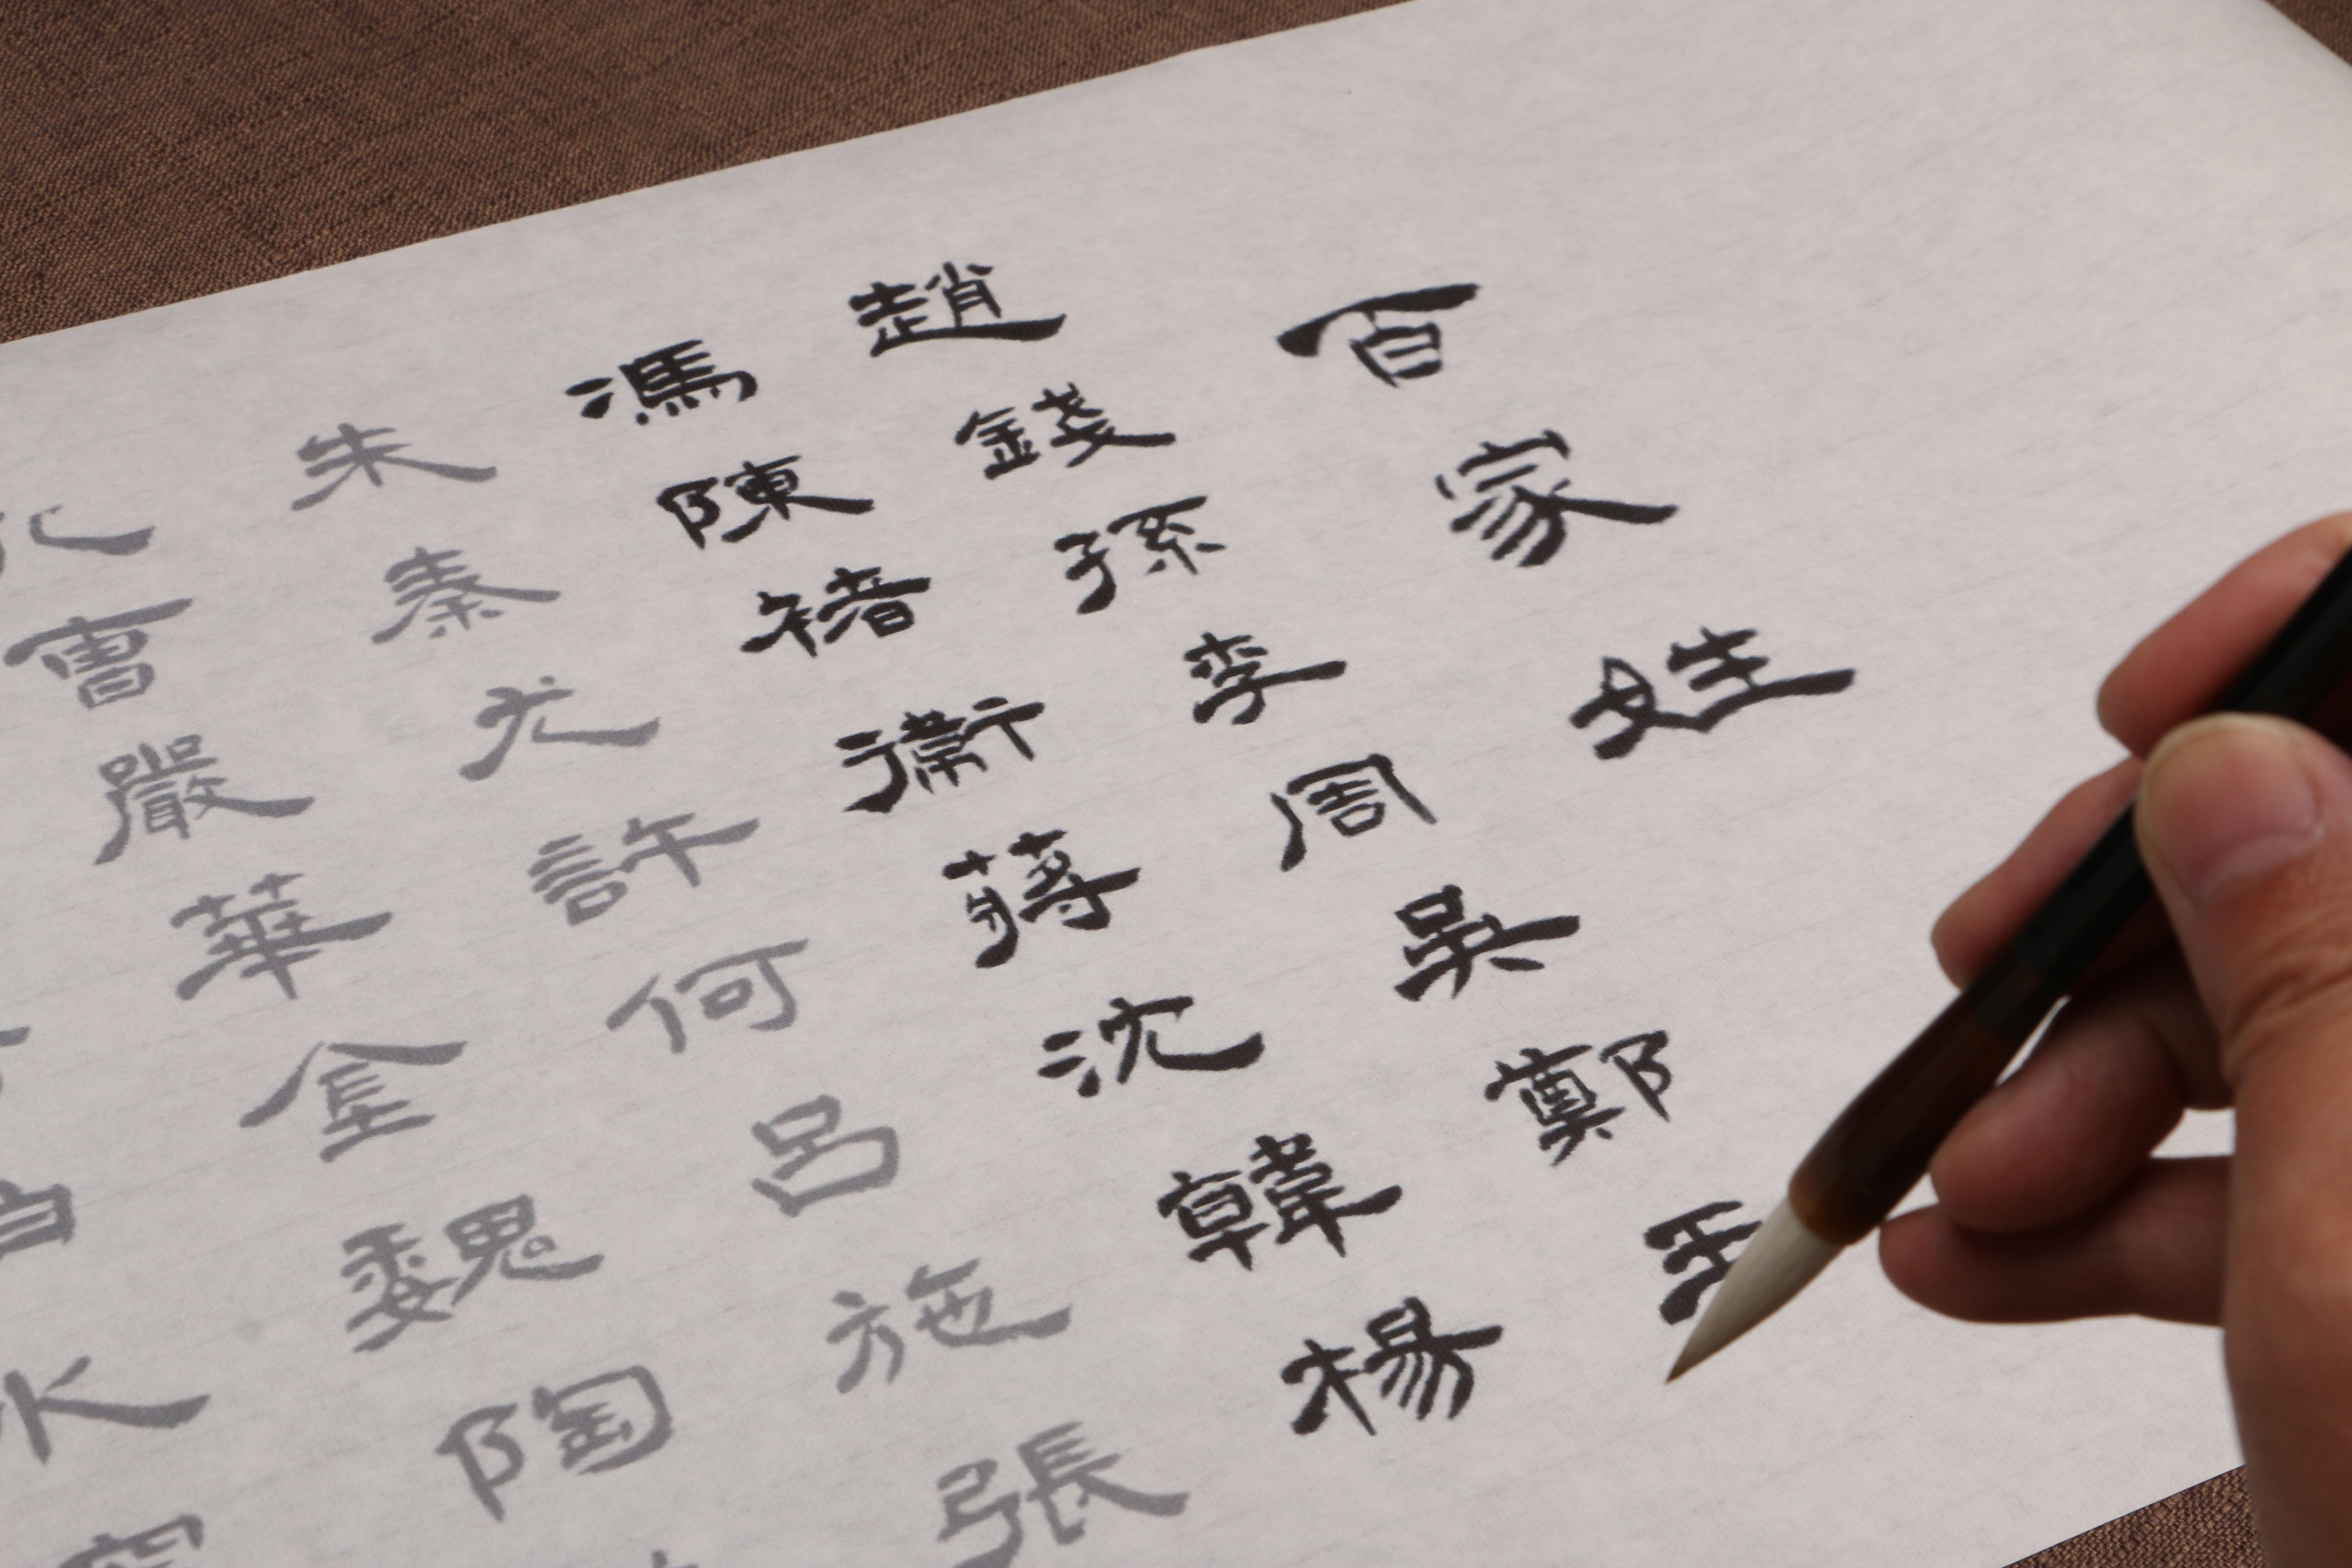 百家姓
趙錢孫李周吳鄭王
馮陳褚衛蔣沈韓楊
朱秦尤許何呂施張
孔曹嚴華金魏陶
水